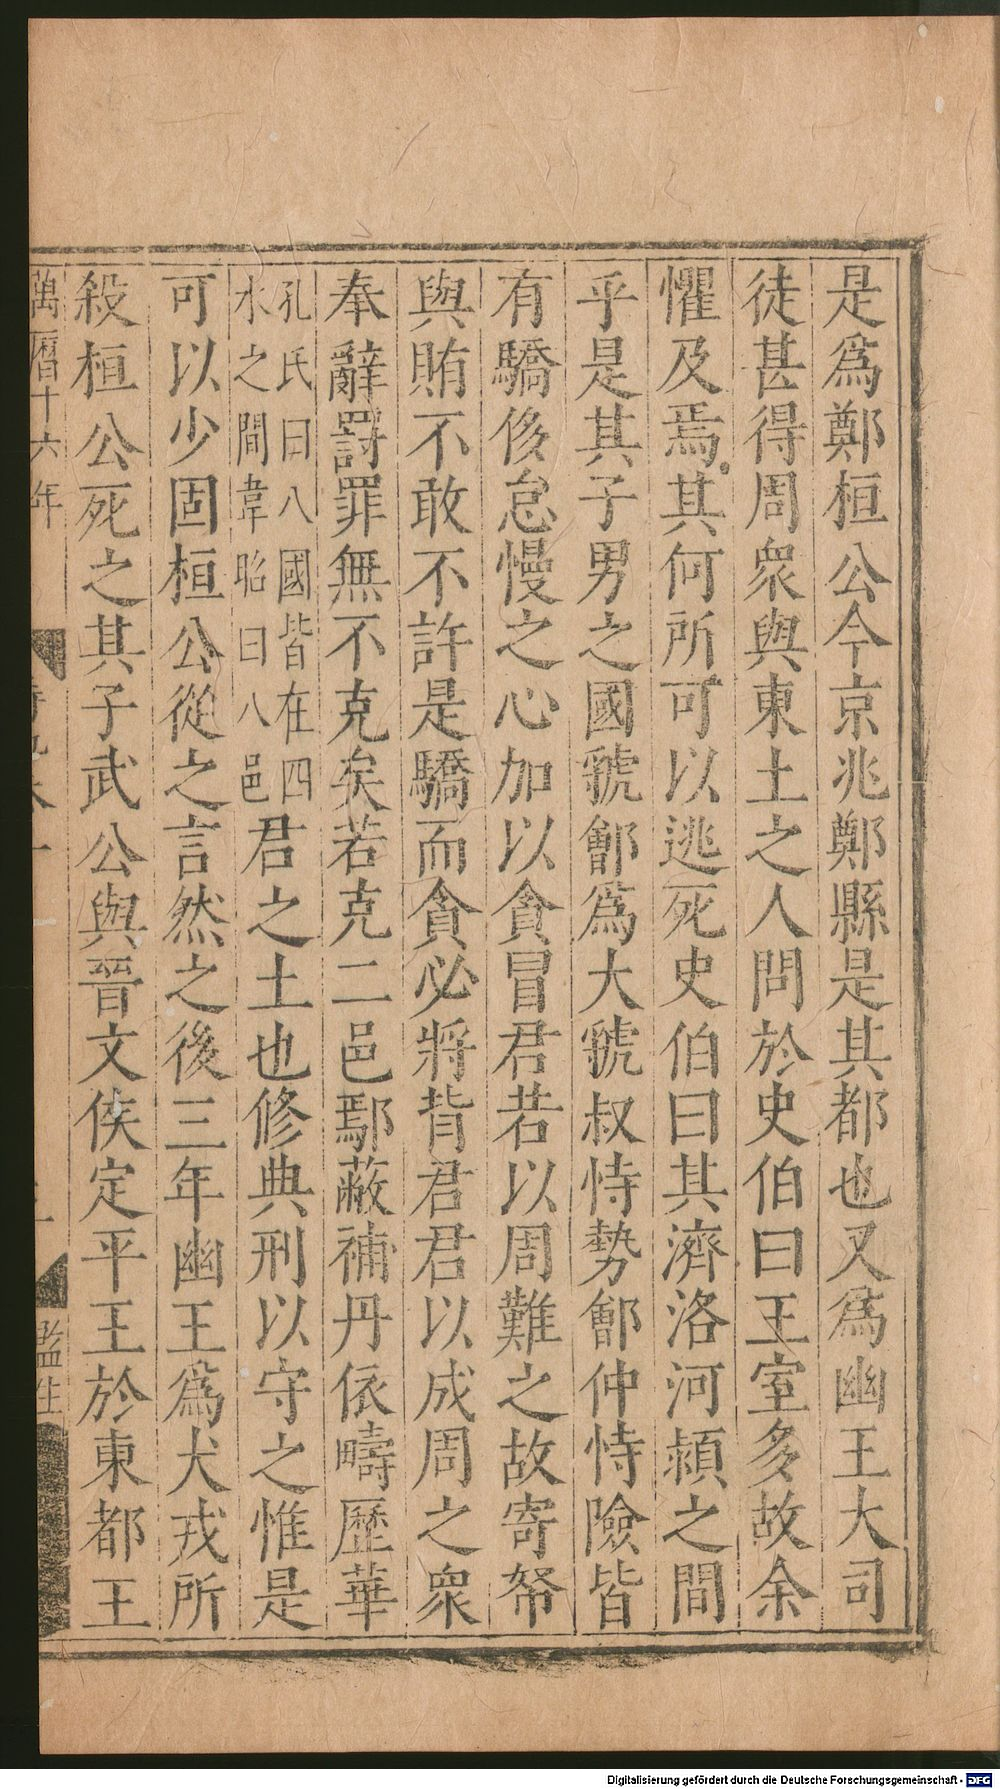 是爲鄭桓公今京兆鄭縣是其都也又爲幽王大司
徒甚得周衆與東土之人問於史伯曰王室多故余
懼及焉其何所可以逃死史伯曰其濟洛河潁之間
乎是其子男之國虢鄶爲大虢叔恃勢鄶仲恃險皆
有驕侈怠慢之心加以貪冒君若以周難之故寄帑
與賄不敢不許是驕而貪必將背君君以成周之衆
奉辭罰罪無不克矣若克二邑鄢蔽補丹依疇歷華
孔氏曰八國皆在四
水之間韋昭曰八邑
君之土也修典刑以守之惟是
可以少固桓公從之言然之後三年幽王爲犬戎所
殺桓公死之其子武公與晉文侯定平王於東都王
萬曆十六年
監生
Digitalisierung gefördert durch die Deutsche Forschungsgemeinschaft - DFG